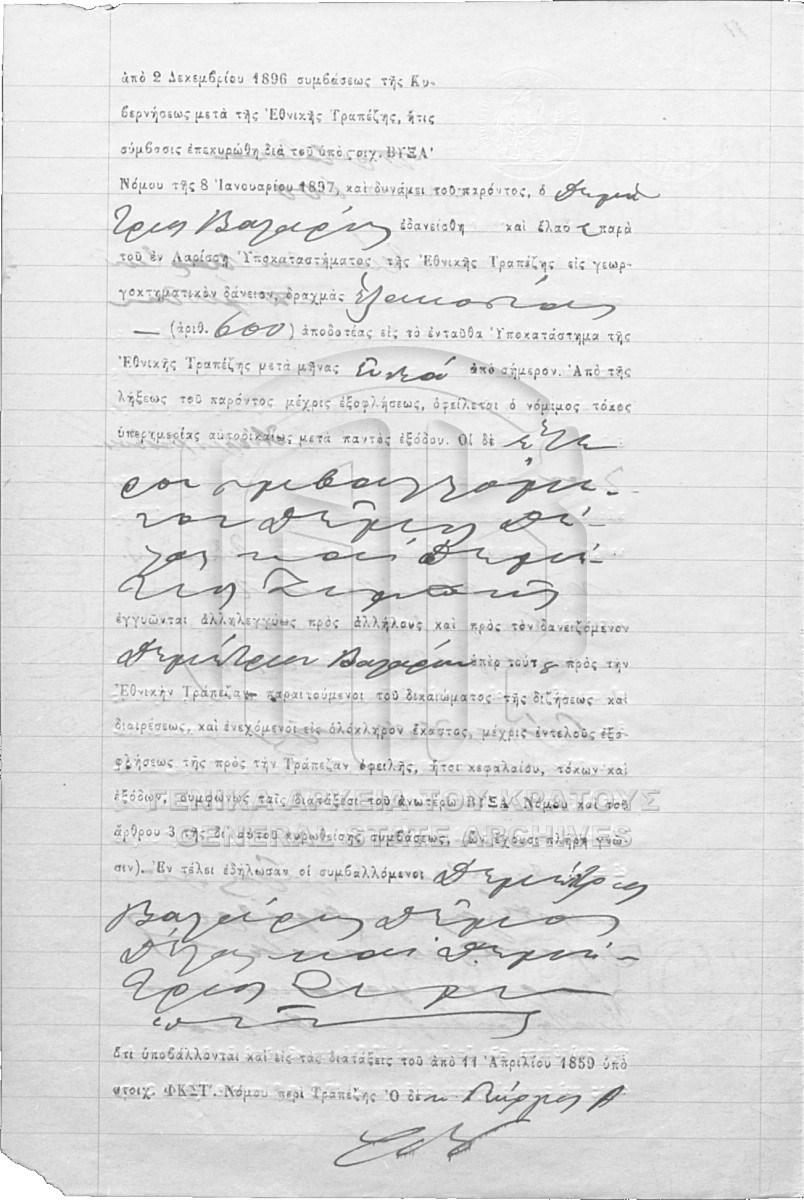 ἀπὸ 2 Δεκεμβρίου 1896 συμβάσεως τῆς Κυ-
βερνήσεως μετὰ τῆς Ἐθνικῆς Τραπέζης, ἥτις
σύμβασις ἐπεκυρώθη διὰ τοῦ ὑπὸ στοιχ. ΒΥΞΑ'
Νόμου τῆς 8 Ἰανουαρίου 1897, καὶ δυνάμει τοῦ παρόντος, ὁ Δημή
τριος ἐδανείσθη καὶ ἔλαβε παρὰ
τοῦ ἐν Λαρίσσῃ Ὑποκαταστήματος τῆς Ἐθνικῆς Τραπέζης εἰς γεωρ-
γοκτηματικὸν δάνειον, δραχμὰς ἑξακοσίας
— (ἀριθ. 600) ἀποδοτέας εἰς τὸ ἐνταῦθα Ὑποκατάστημα τῆς
Ἐθνικῆς Τραπέζης μετὰ μῆνας ἐννέα ἀπὸ σήμερον. Ἀπὸ τῆς
λήξεως τοῦ παρόντος μέχρις ἐξοφλήσεως, ὀφείλεται ὁ νόμιμος τόκος
ὑπερημερίας αὐτοδικαίως μετὰ παντὸς ἐξόδου. Οἱ δὲ ἕτε
ροι συμβαλλόμε-
νοι καὶ Δημή-
τριος
ἐγγυῶνται ἀλληλεγγύως πρὸς ἀλλήλους καὶ πρὸς τὸν δανειζόμενον
Δημήτριον ὑπὲρ τούτου πρὸς τὴν
Ἐθνικὴν Τράπεζαν παραιτούμενοι τοῦ δικαιώματος τῆς διζήσεως καὶ
διαιρέσεως, καὶ ἐνεχόμενοι εἰς ὁλόκληρον ἕκαστος, μέχρις ἐντελοῦς ἐξο-
φλήσεως τῆς πρὸς τὴν Τράπεζαν ὀφειλῆς, ἤτοι κεφαλαίου, τόκων καὶ
ἐξόδων, συμφώνως ταῖς διατάξεσι τοῦ ἀνωτέρω ΒΥΞΑ Νόμου καὶ τοῦ
ΓΕΝΙΚΑ ΑΡΧΕΙΑ ΤΟΥ ΚΡΑΤΟΥΣ
ἄρθρου 3 τῆς δι' αὐτοῦ κυρωθείσης συμβάσεως, (ὧν ἔχουσι πλήρη γνῶ-
GENERAL STATE ARCHIVES
σιν). Ἐν τέλει ἐδήλωσαν οἱ συμβαλλόμενοι Δημήτριος
καὶ Δημή-
τριος
ὅτι ὑποβάλλονται καὶ εἰς τὰς διατάξεις τοῦ ἀπὸ 11 Ἀπριλίου 1859 ὑπὸ
στοιχ. ΦΚΣΤ'. Νόμου περὶ Τραπέζης Ὁ δὲ